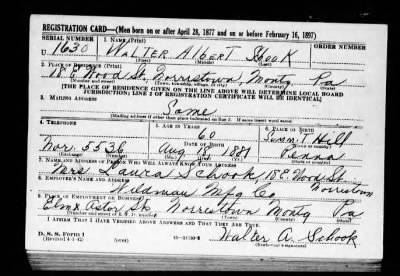 REGISTRATION CARD—(Men born on or after April 28, 1877 and on or before February 16, 1897)
SERIAL NUMBER 1. NAME (Print) ORDER NUMBER
U 1630 WALTER ALBERT SHOOK
(First) (Middle) (Last)
2. PLACE OF RESIDENCE (Print)
18 E Wood St, Norristown, Montg Pa
(Number and street) (Town, township, village, or city) (County) (State)
[THE PLACE OF RESIDENCE GIVEN ON THE LINE ABOVE WILL DETERMINE LOCAL BOARD
JURISDICTION; LINE 2 OF REGISTRATION CERTIFICATE WILL BE IDENTICAL]
3. MAILING ADDRESS
Same
(Mailing address if other than place indicated on line 2. If same insert word same)
4. TELEPHONE 5. AGE IN YEARS 6. PLACE OF BIRTH
60
DATE OF BIRTH
Nor. 5536 Aug 18, 1881 Penna
(Exchange) (Number) (Mo.) (Day) (Yr.) (State or country)
7. NAME AND ADDRESS OF PERSON WHO WILL ALWAYS KNOW YOUR ADDRESS
Mrs. Laura Schook 18 E. Wood St.
Norristown
8. EMPLOYER'S NAME AND ADDRESS
Wildman Mfg Co
9. PLACE OF EMPLOYMENT OR BUSINESS
Elm & Astor St Norristown Montg Pa
(Number and street or R. F. D. number) (Town) (County) (State)
I AFFIRM THAT I HAVE VERIFIED ABOVE ANSWERS AND THAT THEY ARE TRUE.
D. S. S. Form 1
(Revised 4-1-42) (over) Walter A. Schook
(Registrant's signature)